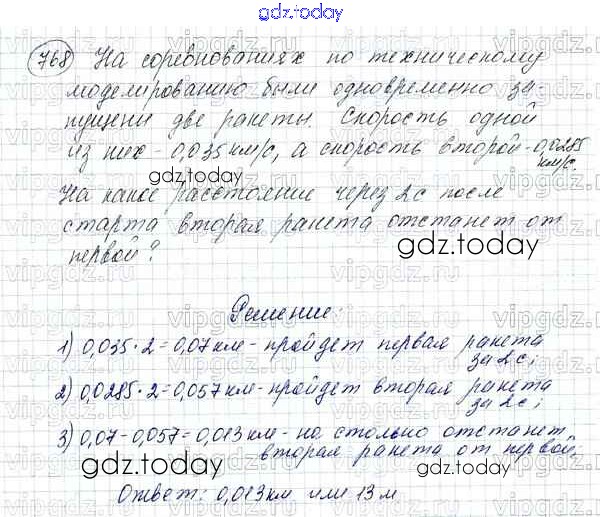 gdz.today
768 На соревнованиях по техническому
моделированию были одновременно за-
пущены две ракеты. Скорость одной
из них - 0,035 км/с, а скорость второй - 0,0285 км/с.
gdz.today
На какое расстояние через 2с после
старта вторая ракета отстанет от
первой?
gdz.today
Решение:
1) 0,035·2=0,07км-пройдет первая ракета
за 2с;
2) 0,0285·2=0,057км-пройдет вторая ракета
за 2с;
3) 0,07-0,057=0,013км-на столько отстанет
вторая ракета от первой.
gdz.today
gdz.today
Ответ: 0,013км или 13м